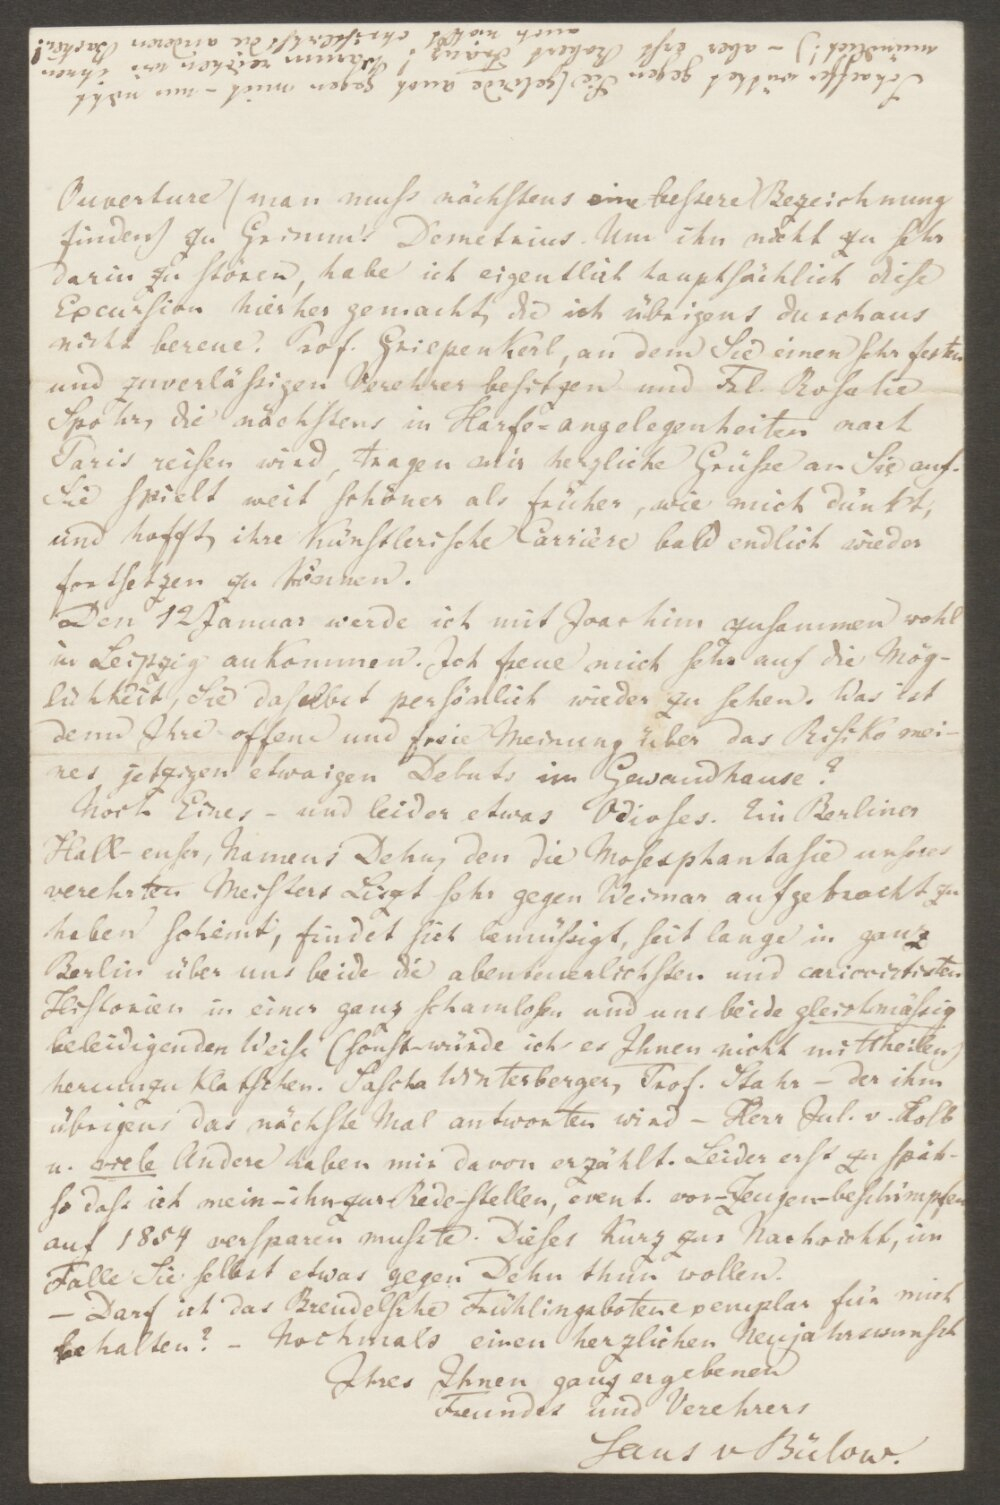 Schaeffer wüthet gegen Sie (gelinde auch gegen mich – nun nicht
mündlich!) – aber erst Robert Franz! Warum reichen wir ihnen
auch nicht christlich die anderen Backen!
Ouverture (man muss nächstens eine bessere Bezeichnung
finden) zu Grimm's Demetrius. Um ihn nicht zu sehr
darin zu stören, habe ich eigentlich hauptsächlich diese
Excursion hierher gemacht, die ich übrigens durchaus
nicht bereue. Prof. Griepenkerl, an dem Sie einen sehr festen
und zuverlässigen Verehrer besitzen und Frl. Rosalie
Spohr, die nächstens in Harfe-angelegenheiten nach
Paris reisen wird, tragen mir herzliche Grüsse an Sie auf.
Sie spielt weit schöner als früher, wie mich dünkt,
und hofft, ihre künstlerische Carrière bald endlich wieder
fortsetzen zu können.
Den 12 Januar werde ich mit Joachim zusammen wohl
in Leipzig ankommen. Ich freue mich sehr auf die Mög-
lichkeit, Sie daselbst persönlich wieder zu sehen. Was ist
denn Ihre offene und freie Meinung über das Risiko mei-
nes jetzigen etwaigen Debuts im Gewandhause?
Noch Eines – und leider etwas Odioses. Ein Berliner
Hall-enser, Namens Dehn, den die Mosesphantasie unseres
verehrten Meisters Liszt sehr gegen Weimar aufgebracht zu
haben scheint, findet sich bemüssigt, seit lange in ganz
Berlin über uns beide die abenteuerlichsten und carricirtesten
Historien in einer ganz schamlosen und uns beide gleichmässig
beleidigenden Weise (sonst würde ich es Ihnen nicht mittheilen)
herumzuklatschen. Sascha Winterberger, Prof. Stahr – der ihm
übrigens das nächste Mal antworten wird – Herr Jul. v. Kolb
u. viele Andere haben mir davon erzählt. Leider erst zu spät –
so dass ich mein-ihn-zur-Rede-stellen, event. vor-Zeugen-beschimpfen
auf 1854 versparen musste. Dieses kurz zur Nachricht, im
Falle Sie selbst etwas gegen Dehn thun wollen.
– Darf ich das Brendelsche Frühlingsbotenexemplar für mich
behalten? – Nochmals einen herzlichen Neujahrswunsch
Ihres Ihnen ganz ergebenen
Freundes und Verehrers
Hans v Bülow.